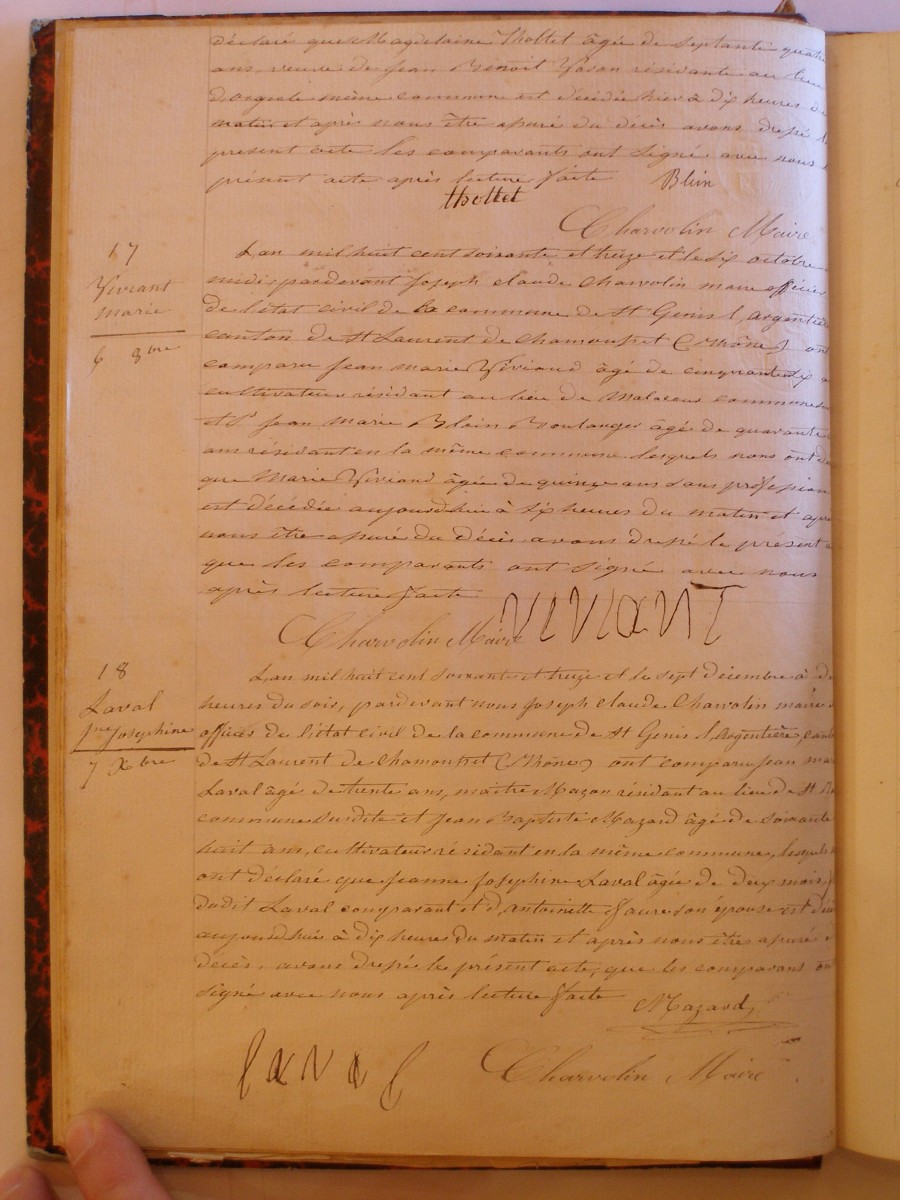 déclaré que Magdelaine Thollet âgée de septante quatre
ans, veuve de Jean Benoit résidante au lieu
même commune est décédée hier à dix heures du
matin et après nous être assuré du décès avons dressé le
present acte les comparants ont signé avec nous
présent acte après lecture faite Blein
thollet
Charvolin Maire
17
Viviant
marie
6 8bre
L'an mil huit cent soixante et treize et le six octobre
midi, pardevant Joseph claude Charvolin maire officier
de l'état civil de la commune de St Genis l'argentière
canton de St Laurent de chamousset (Rhône) ont
comparu Jean marie Viviand âgé de cinquante six
cultivateur résidant au lieu de commune
et Sr Jean Marie Blein Boulanger âgé de quarante
ans résidant en la même commune lesquels nous ont
que Marie Viviand âgée de quinze ans sans profession
est décédée aujourd'hui à six heures du matin et après
nous être assuré du décès avons dressé le présent
que les comparants ont signé avec nous
après lecture faite
VIVIANT
Charvolin Maire
18
Laval
jne Josephine
7 Xbre
L'an mil huit cent soixante et treize et le sept décembre à
heures du soir, pardevant nous Joseph claude Charvolin maire
officier de l'état civil de la commune de St Genis l'Argentière,
de St Laurent de Chamousset (Rhône) ont comparu Jean
Laval âgé de trente ans, maitre Maçon résidant au lieu de St
commune susdite et Jean Baptiste Mazard âgé de soixante
huit ans, cultivateur résidant en la même commune, lesquels
ont déclaré que Jeanne Josephine Laval âgée de deux mois
dudit Laval comparant et d'Antoinette Faure son épouse est
aujourd'huis à dix heures du matin et après nous être assuré
décès, avons dressé le présent acte, que les comparans
signé avec nous après lecture faite
Mazard
laval
Charvolin Maire